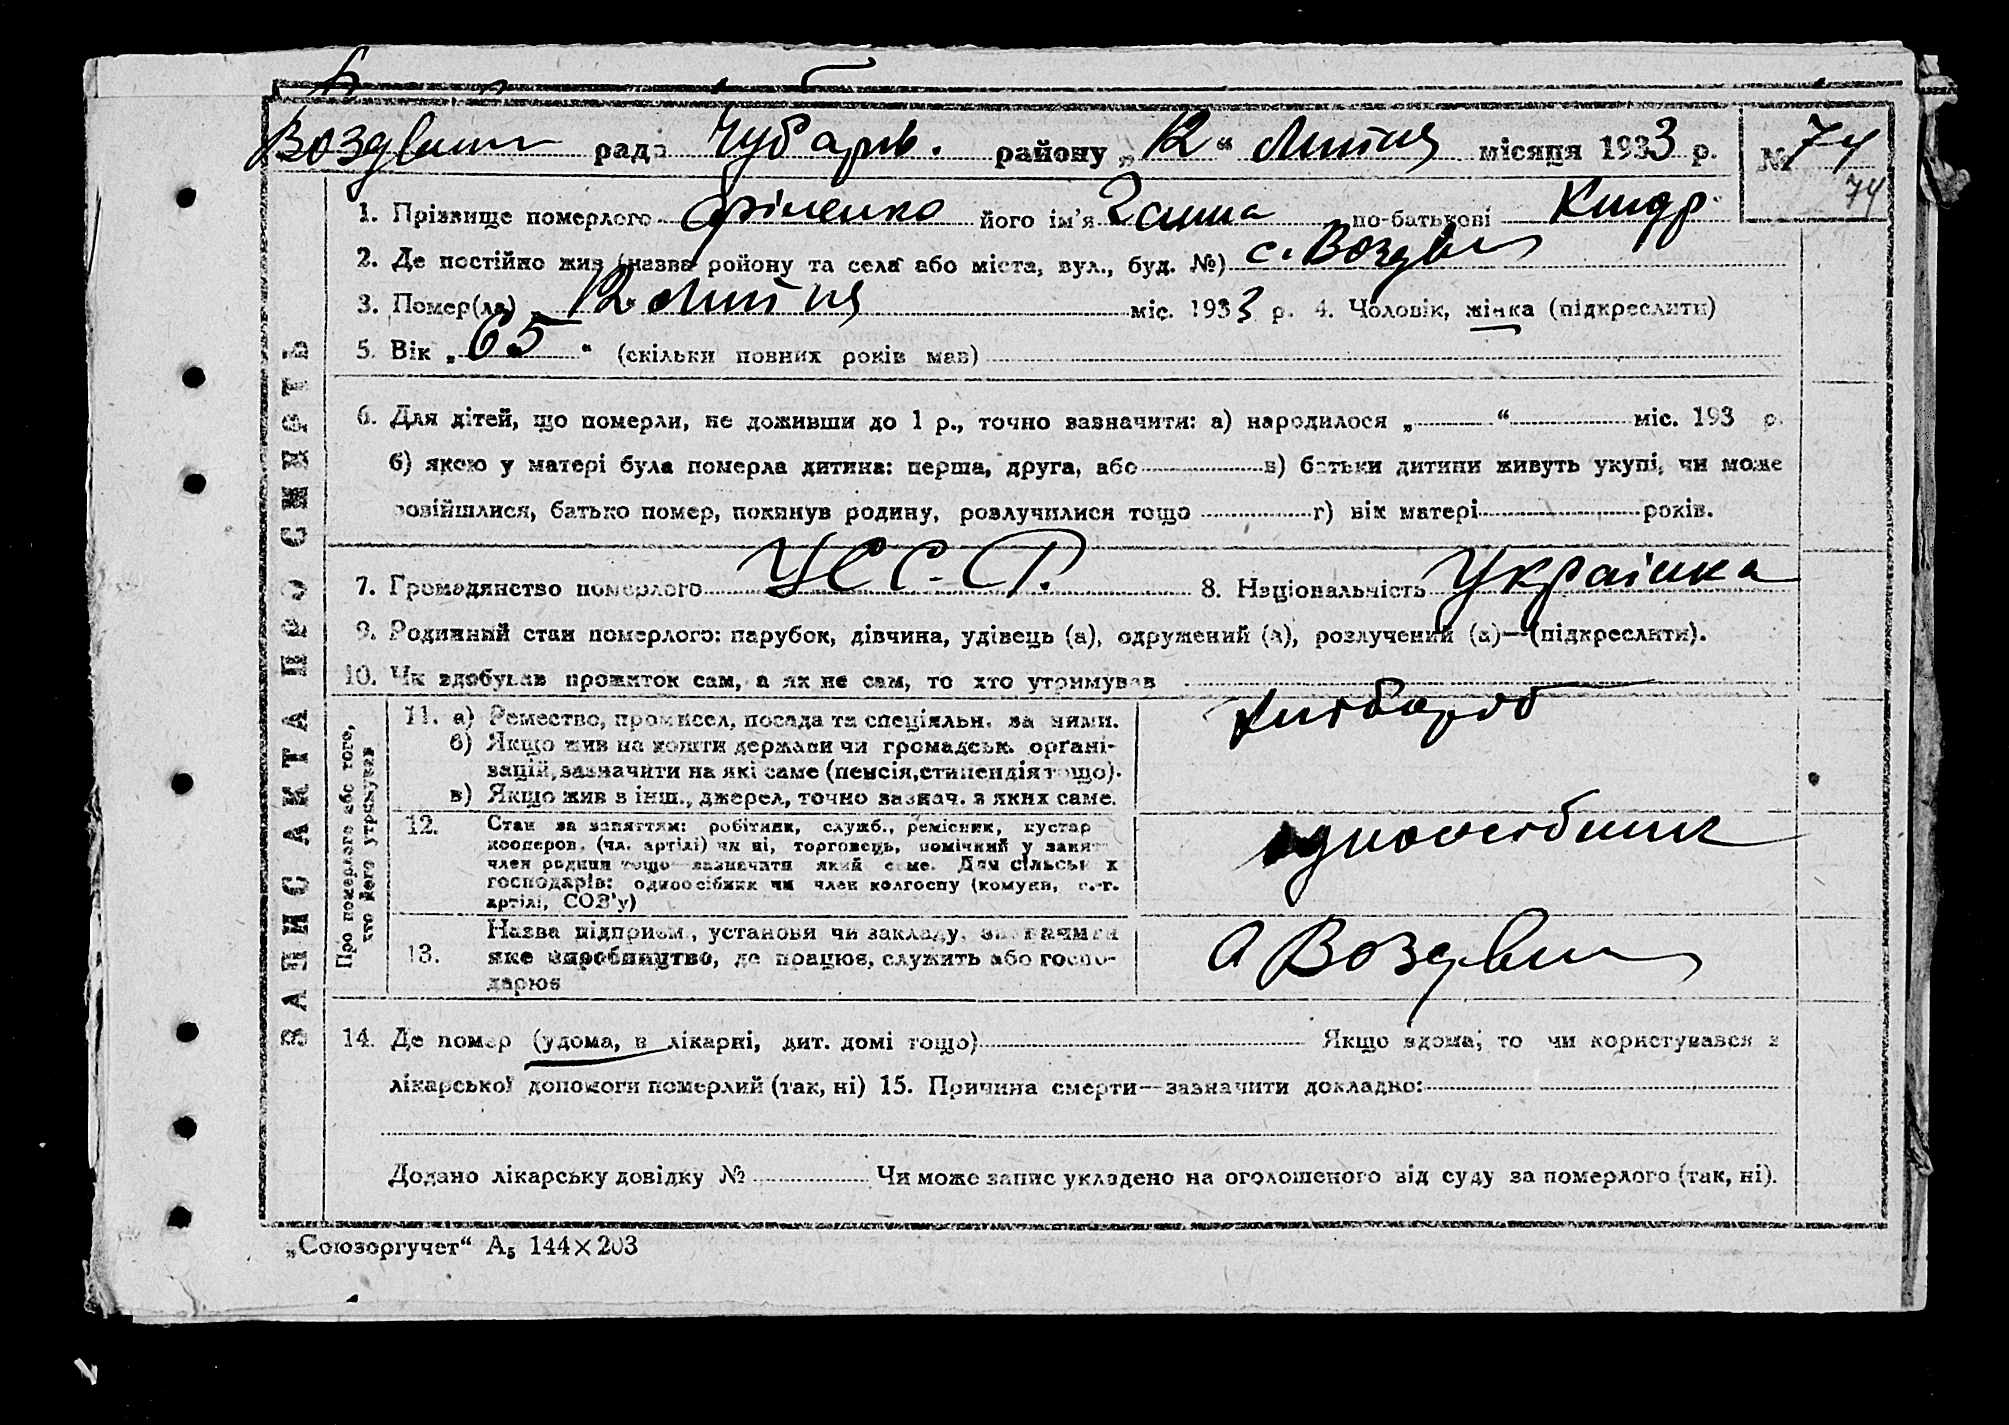 Воздвиж рада Чубарів. району „12“ Липня місяця 1933 р. № 74
74
1. Прізвище померлого його ім'я по-батькові Киндр
2. Де постійно жив (назва району та села або міста, вул., буд. №) с. Воздв
3. Помер(ла) „12“ Липня міс. 1933 р. 4. Чоловік, жінка (підкреслити)
5. Вік „65“ (скільки повних років мав)
6. Для дітей, що померли, не доживши до 1 р., точно зазначити: а) народилося „ “ міс. 193 р.
б) якою у матері була померла дитина: перша, друга, або в) батьки дитини живуть укупі, чи може
розійшлися, батько помер, покинув родину, розлучилися тощо г) вік матері років.
7. Громадянство померлого УССР. 8. Національність Українка
9. Родинний стан померлого: парубок, дівчина, удівець (а), одружений (а), розлучений (а)—(підкреслити).
10. Чи здобував прожиток сам, а як не сам, то хто утримував
ЗАПИС АКТА ПРО СМЕРТЬ
Про померлого або того,
хто його утримував
11. а) Ремество, промисел, посада та спеціяльн. за ними. Хлібороб
б) Якщо жив на кошти держави чи громадськ. органі-
зацій, зазначити на які саме (пенсія, стипендія тощо).
в) Якщо жив в інш., джерел, точно зазнач. з яких саме.
12. Стан за заняттям: робітник, служб., ремісник, кустар
кооперов. (чл. артілі) чи ні, торговець, помічний у занят
член родини тощо зазначати який саме. Для сільськ х
господарів: одноосібник чи член колгоспу (комуни, с.-г.
артілі, СОЗ'у) одноосібник
13. Назва підприєм., установи чи закладу, зазначити
яке виробництво, де працює, служить або госпо-
дарює Воздвиж
14. Де помер (удома, в лікарні, дит. домі тощо) Якщо вдома, то чи користувався з
лікарської допомоги померлий (так, ні) 15. Причина смерти—зазначити докладно:
Додано лікарську довідку № Чи може запис укладено на оголошеного від суду за померлого (так, ні).
„Союзоргучет“ А₅ 144×203